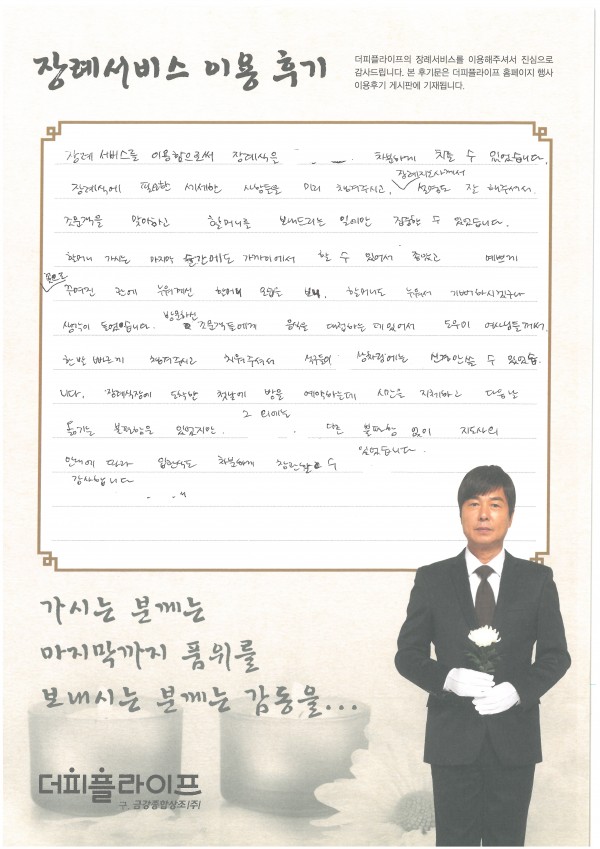 장례서비스 이용 후기
더피플라이프의 장례서비스를 이용해주셔서 진심으로
감사드립니다. 본 후기문은 더피플라이프 홈페이지 행사
이용후기 게시판에 기재됩니다.
장례 서비스를 이용함으로써 장례식은 차분하게 치를 수 있었습니다.
장례지도사께서
장례식에 필요한 세세한 사항들을 미리 챙겨주시고, 설명도 잘 해주셔서
조문객을 맞이하고 할머니를 보내드리는 일에만 집중할 수 있었습니다.
할머니 가시는 마지막 순간에도 가까이에서 할 수 있어서 좋았고 예쁘게
꽃으로
꾸며진 관에 누워계신 할머니 모습을 보니, 할머니도 누워서 기뻐하시겠구나
생각이 들었습니다. 방문하신 조문객들에게 음식을 대접하는 데 있어서 도우미 여사님들께서
한발 빠르게 챙겨주시고 치워주셔서 식구들이 상차림에는 신경안쓸 수 있었습
니다. 장례식장에 도착한 첫날에 방을 예약하는데 시간을 지체하고 다음날
옮기는 불편함은 있었지만 그 외에는 다른 불편함 없이 지도사의
안내에 따라 입관식도 차분하게 참관할 수 있었습니다.
감사합니다
가시는 분께는
마지막까지 품위를
보내시는 분께는 감동을...
더피플라이프
구. 금강종합상조(주)